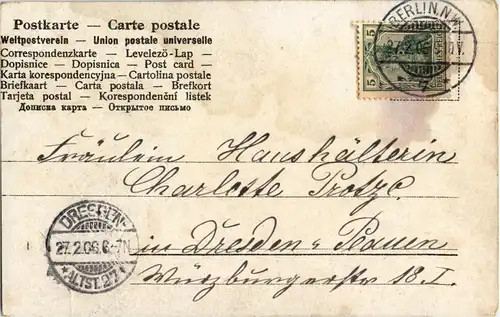 Postkarte — Carte postale
Weltpostverein — Union postale universelle
Correspondenzkarte — Levelező-Lap
Dopisnice — Dopisnica — Post card —
Karta korespondencyjna — Cartolina postale
Briefkaart — Carta postala — Brefkort
Tarjeta postal — Korespondenční listek
Дописна карта — Открытое письмо
BERLIN N.W.
27.2.06
5 5
Fräulein Haushälterin
Charlotte Protze
DRESDEN-
27.2.06. 6-7N
*ALTST. 27*
in Dresden-Plauen
Würzburgerstr 18. I.